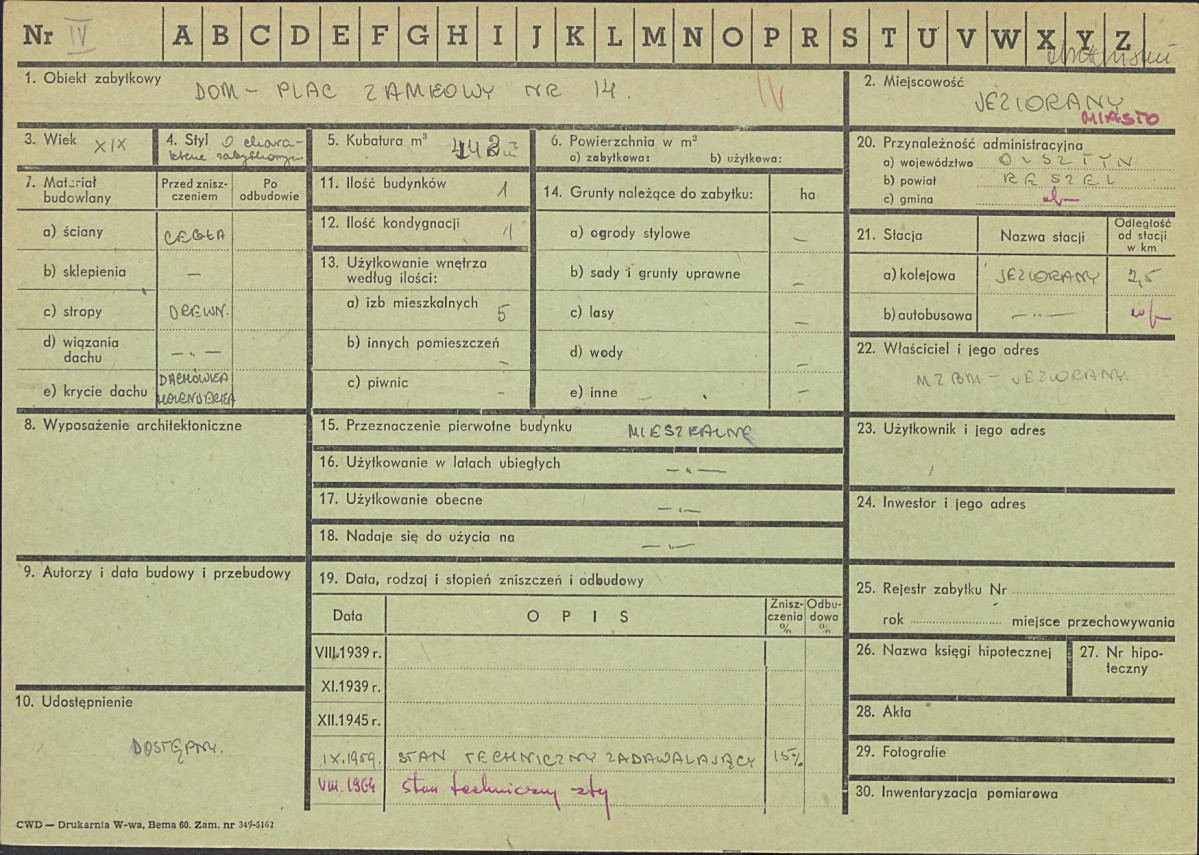 Nr IV A B C D E F G H I J K L M N O P R S T U V W X Y Z
1. Obiekt zabytkowy
DOM - PLAC ZAMKOWY NR 14.
IV
2. Miejscowość
JEZIORANY
MIASTO
3. Wiek XIX
4. Styl O chara-
kterze zabytkowym
5. Kubatura m³
6. Powierzchnia w m²
a) zabytkowa: b) użytkowa:
20. Przynależność administracyjna
a) województwo OLSZTYN
b) powiat RESZEL
c) gmina
7. Materiał
budowlany
Przed znisz-
czeniem
Po
odbudowie
a) ściany CEGŁA
b) sklepienia —
c) stropy DREWN.
d) wiązania
dachu — „ —
e) krycie dachu DACHÓWKA
HOLENDERKA
11. Ilość budynków 1
12. Ilość kondygnacji 1
13. Użytkowanie wnętrza
według ilości:
a) izb mieszkalnych 5
b) innych pomieszczeń -
c) piwnic -
14. Grunty należące do zabytku: ha
a) ogrody stylowe -
b) sady i grunty uprawne -
c) lasy -
d) wody -
e) inne - -
21. Stacja Nazwa stacji
Odległość
od stacji
w km
a) kolejowa JEZIORANY 2,5
b) autobusowa — „ —
22. Właściciel i jego adres
MZBM - JEZIORANY.
8. Wyposażenie architektoniczne
15. Przeznaczenie pierwotne budynku MIESZKALNE
16. Użytkowanie w latach ubiegłych — „ —
17. Użytkowanie obecne — „ —
18. Nadaje się do użycia na — „ —
23. Użytkownik i jego adres
24. Inwestor i jego adres
9. Autorzy i data budowy i przebudowy
19. Data, rodzaj i stopień zniszczeń i odbudowy
Data OPIS
Znisz-
czenia
%
Odbu-
dowa
%
VIII.1939 r.
XI.1939 r.
XII.1945 r.
IX.1959. STAN TECHNICZNY ZADAWALAJĄCY 15%
VIII.1964 stan techniczny zły
25. Rejestr zabytku Nr
rok miejsce przechowywania
26. Nazwa księgi hipotecznej
27. Nr hipo-
teczny
10. Udostępnienie
DOSTĘPNY.
28. Akta
29. Fotografie
30. Inwentaryzacja pomiarowa
CWD — Drukarnia W-wa, Bema 60. Zam. nr 349-5162